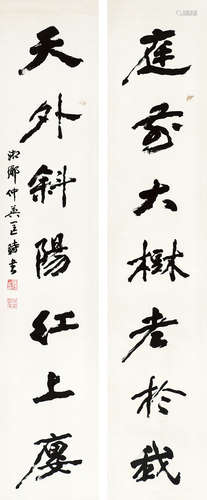 庭前大樹老於我
天外斜陽紅上廔
湘鄉仲英王時書